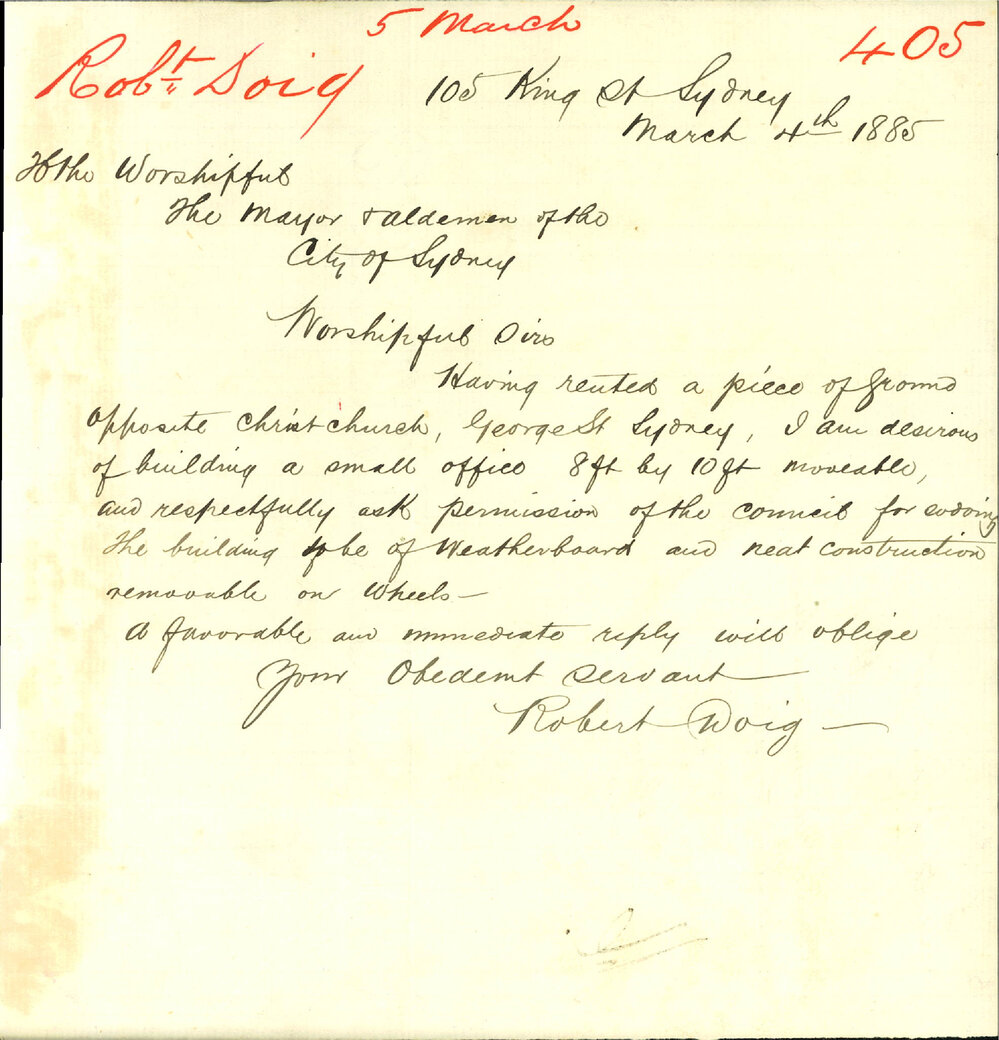 5 March
405
Robt Doig
105 King St Sydney
March 4th 1885
To the Worshipful
The Mayor & aldemen of the
City of Sydney
Worshipful Sirs
Having rented a piece of ground
opposite Christ church, George St Sydney, I am desirous
of building a small office 8ft by 10ft moveable,
and respectfully ask permission of the council for so doing
The building to be of Weatherboard and neat construction
removable on wheels—
A favorable and immediate reply will oblige
Your Obedemt Servant
Robert Doig —